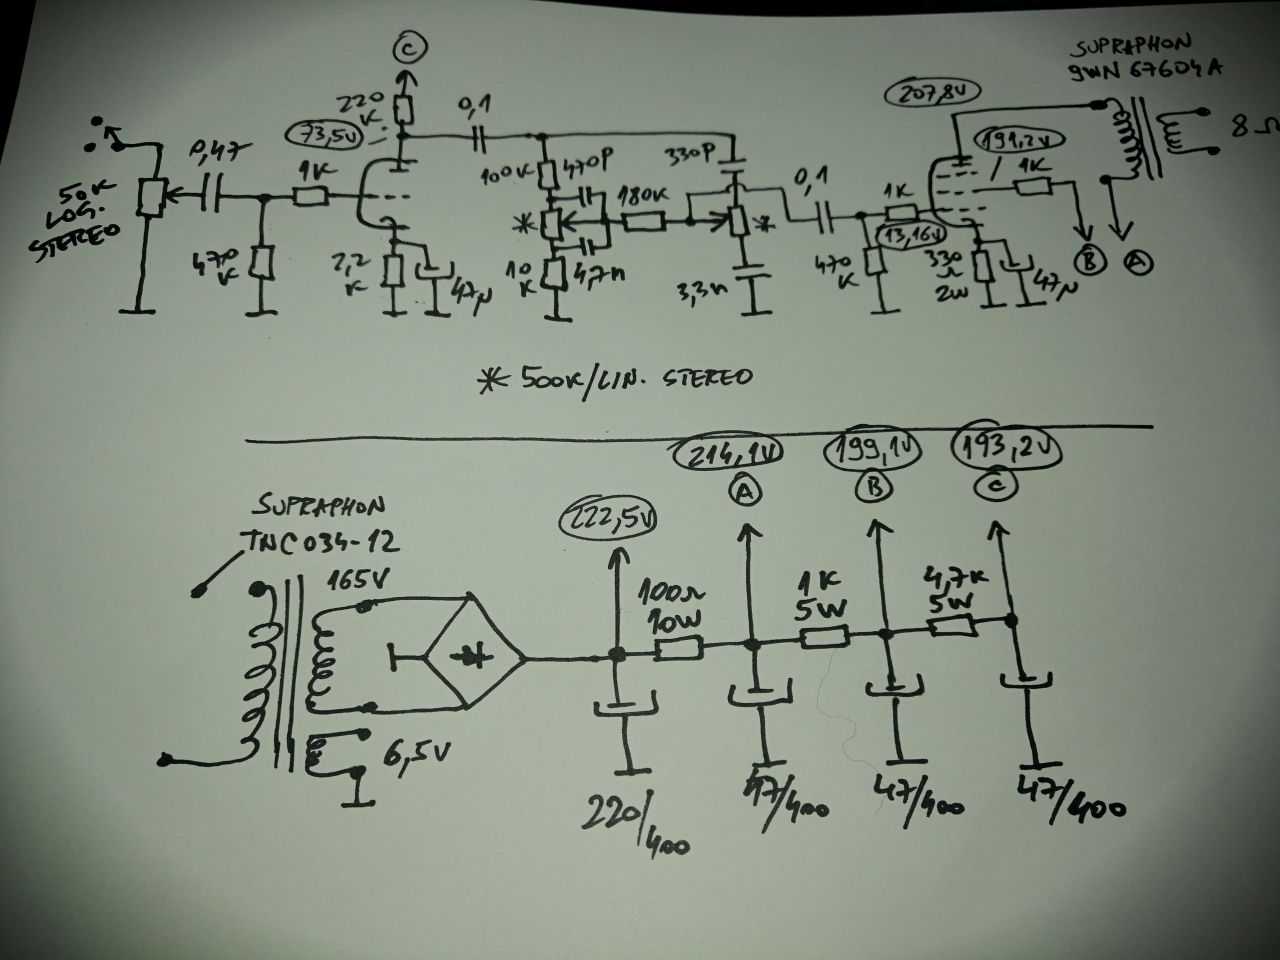 C
SUPRAPHON
9WN 67604A
220
K
0,1
207,8V
73,5V
191,2V
8Ω
0,47
1K
100K
470P
330P
1K
50K
LOG.
STEREO
180K
0,1
1K
*
*
13,16V
470
K
2,2
K
47µ
10
K
4,7n
3,3n
470
K
330
Ω
2W
47µ
B
A
* 500K/LIN. STEREO
214,1V
199,1V
193,2V
A
B
C
SUPRAPHON
TNC034-12
222,5V
165V
100Ω
10W
1K
5W
4,7K
5W
6,5V
220/400
47/400
47/400
47/400